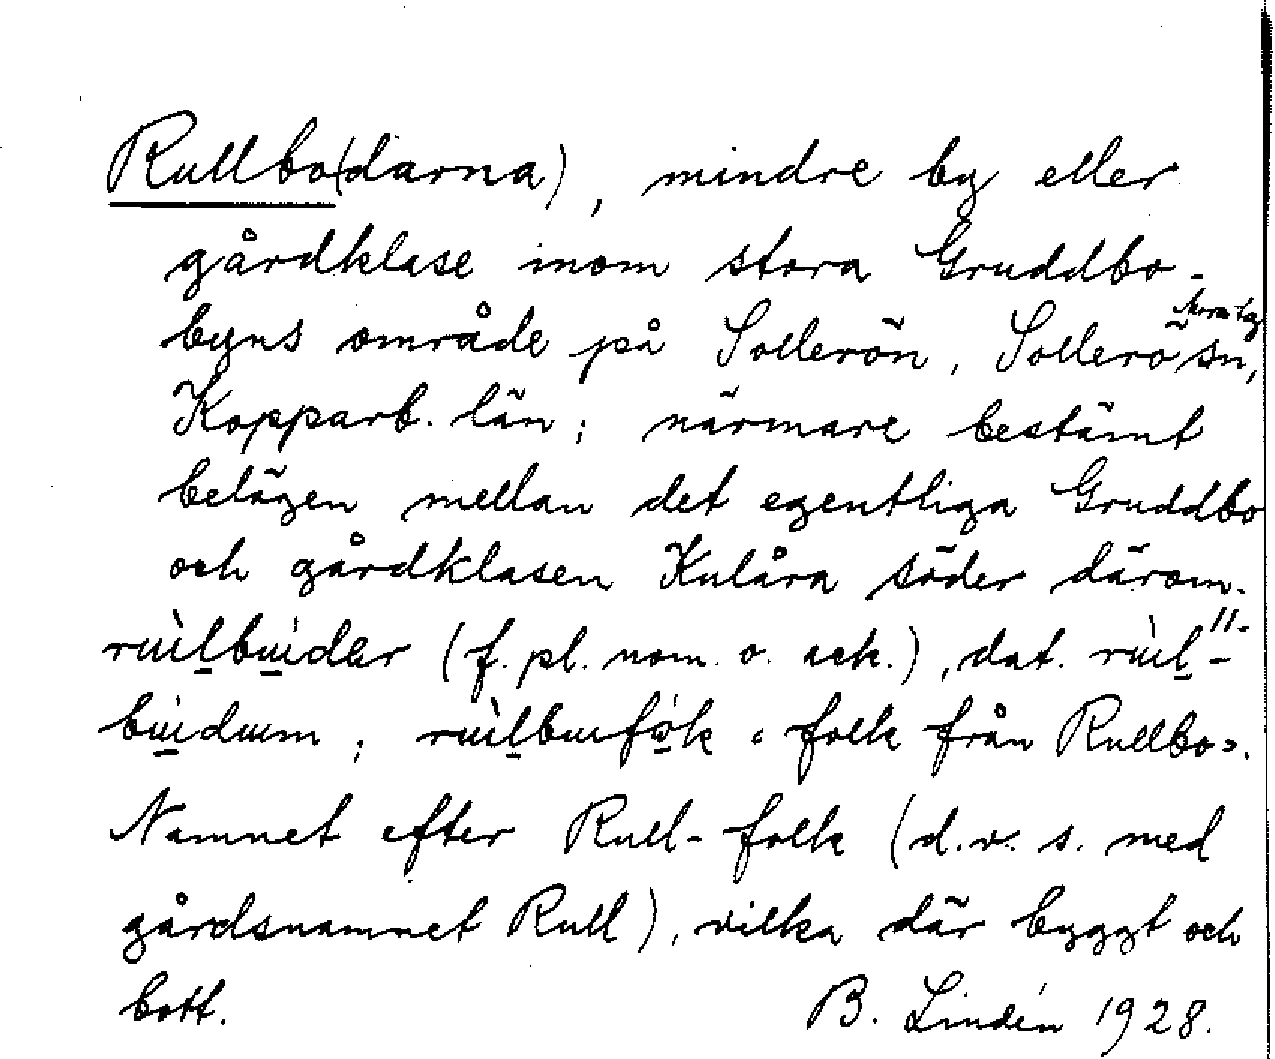 Rullbo(darna), mindre by eller
gårdklase inom stora Gruddbo-
byns område på Sollerön, Sollerö sn,
Kopparb. län; närmare bestämt
belägen mellan det egentliga Gruddbo
och gårdklasen Kulåra söder därom.
(f. pl. nom. o. ack.), dat.
folk från Rullbo».
Namnet efter Rull-folk (d.v.s. med
gårdsnamnet Rull), vilka där byggt och
bott. B. Lindén 1928.